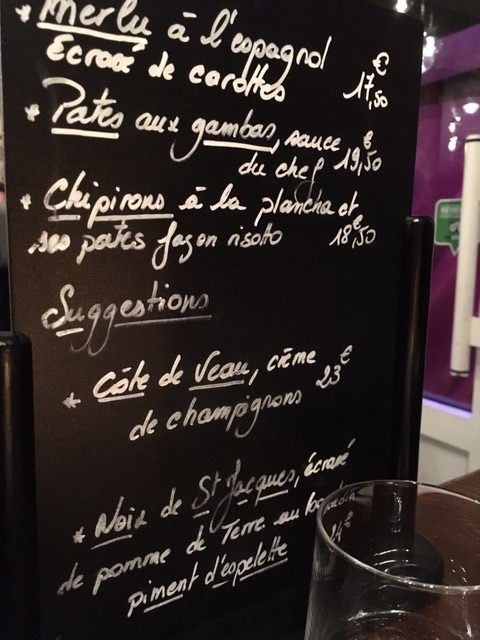 * Merlu à l'espagnol
Écrasé de carottes 17,50 €
* Pates aux gambas, sauce
du chef 19,50 €
* Chipirons à la plancha et
ses pates façon risotto 18,50 €
Suggestions
* Côte de Veau, crème
de champignons 23 €
* Noix de St Jacques, écrasé
de pomme de Terre au
piment d'espelette